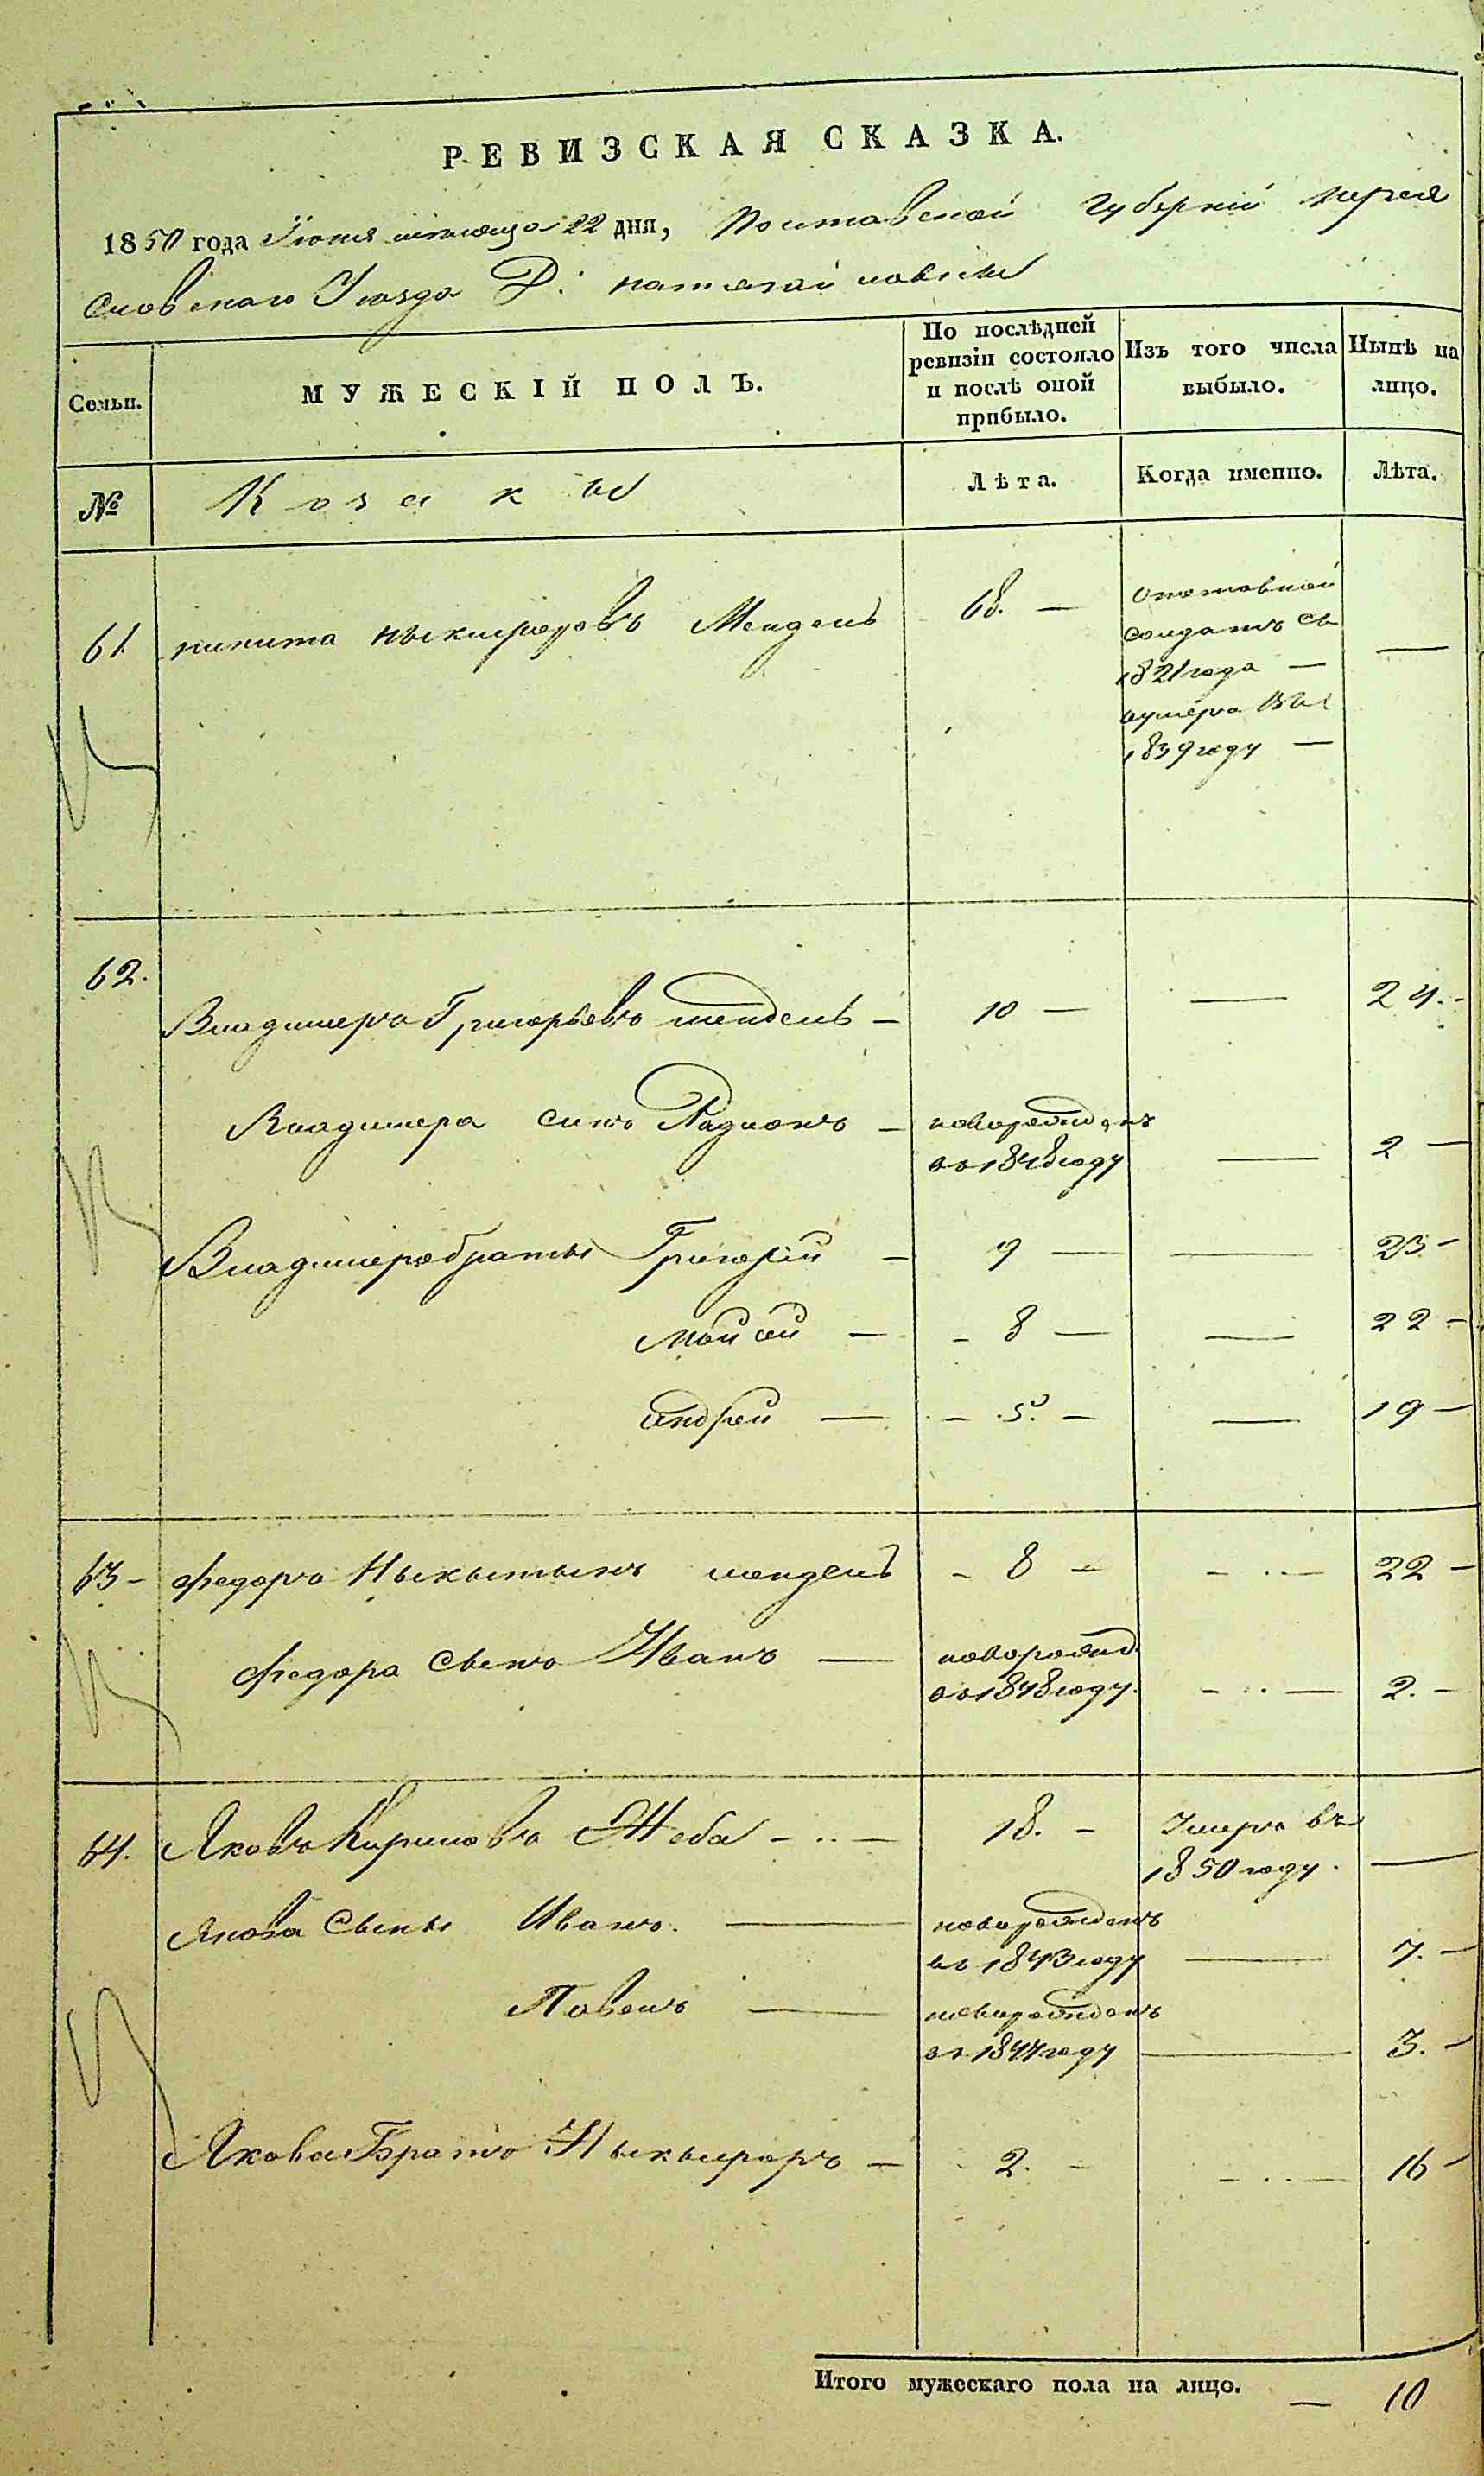 РЕВИЗСКАЯ СКАЗКА.
1850 года Июня месяца 22 дня, Полтавской Губернии Перея
Словскаго Уезда Д:
Семьи.
МУЖЕСКІЙ ПОЛЪ.
По послѣдней ревизіи состояло и послѣ оной прибыло.
Изъ того числа выбыло.
Нынѣ на лицо.
№
Козаки
Лѣта.
Когда именно.
Лѣта.
61 никита Ныкифоровъ Мендель 68. —
солдатъ съ
1821 года —
умеръ въ
1839 году —
62. Владимеръ Григорьевъ мендель — 10 — — 24. -
Владимера синъ Радионъ — новорожденъ
въ 1848 году — 2 —
Владимера браты Григорій — 9 — — 23 -
Мойсей — - 8 — — 22 -
андрей — - 5. - — 19 —
63 - Федоръ Ныкытынъ мендель - 8 - - . — 22 -
Федора Сынъ Иванъ — новорожд.
въ 1848 году. - . — 2. -
64. Яковъ Кириловъ Жеба - .. — 18. - Умеръ въ
1850 году. —
Якова Сыны Иванъ. — новорожденъ
въ 1843 году — 7. -
Павелъ — новорожденъ
въ 1847 году — 3. -
Якова Братъ Ныкыфоръ — 2. - - .. — 16 -
Итого мужескаго пола на лицо. — 10